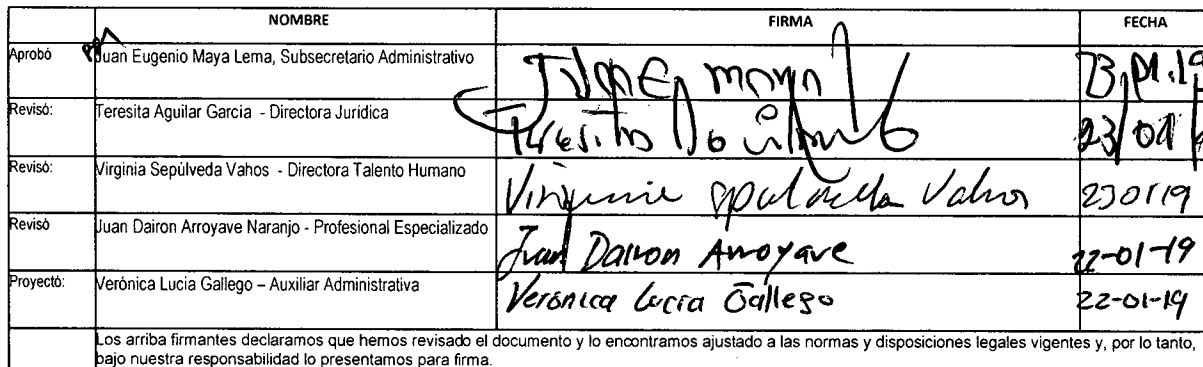 NOMBRE FIRMA FECHA
Aprobó Juan Eugenio Maya Lema, Subsecretario Administrativo 23.01.19
Revisó: Teresita Aguilar García - Directora Jurídica Teresita 23/01
Revisó: Virginia Sepúlveda Vahos - Directora Talento Humano Virginia Sepulveda Vahos 230119
Revisó Juan Dairon Arroyave Naranjo - Profesional Especializado Juan Dairon Arroyave 22-01-19
Proyectó: Verónica Lucia Gallego – Auxiliar Administrativa Verónica Lucia Gallego 22-01-19
Los arriba firmantes declaramos que hemos revisado el documento y lo encontramos ajustado a las normas y disposiciones legales vigentes y, por lo tanto,
bajo nuestra responsabilidad lo presentamos para firma.